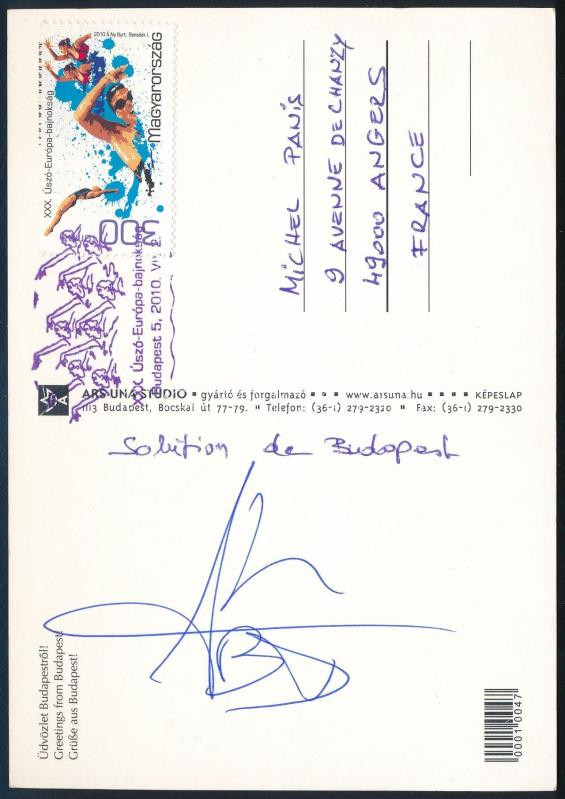 2010 Á.Ny.Nyrt. Benedek I.
MAGYARORSZÁG
XXX. Úszó-Európa-bajnokság
XXX. Úszó-Európa-bajnokság
Budapest 5, 2010. VII. 2.
MICHEL PANIS
9 AVENNE DE CHANZY
49000 ANGERS
FRANCE
ARS UNA STUDIO ▪ gyártó és forgalmazó ▪ ▪ ▪ www.arsuna.hu ▪ ▪ ▪ ▪ KÉPESLAP
1113 Budapest, Bocskai út 77-79. ▪ Telefon: (36-1) 279-2320 ▪ Fax: (36-1) 279-2330
de Budapest
Üdvözlet Budapestről!
Greetings from Budapest!
Grüße aus Budapest!
0001 0047